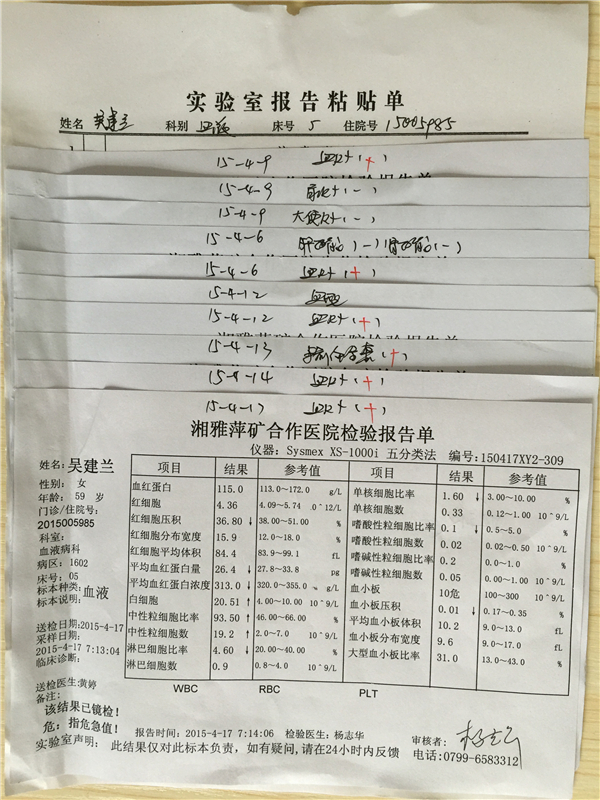 实验室报告粘贴单
姓名 吴建兰 科别 血液 床号 5 住院号 15005985
15-4-9 血Rt(+)
15-4-9 尿Rt(-)
15-4-9 大便Rt(-)
15-4-6
15-4-6 血Rt(+)
15-4-12
15-4-12 血Rt(+)
15-4-13 (+)
15-4-14 血Rt(+)
15-4-17 血Rt(+)
湘雅萍矿合作医院检验报告单
仪器: Sysmex XS-1000i 五分类法 编号:150417XY2-309
姓名:吴建兰
性别: 女
年龄: 59 岁
门诊/住院号:
2015005985
科室:
血液病科
病区: 1602
床号: 05
标本种类:血液
标本说明:
送检日期:2015-4-17
采样日期:
2015-4-17 7:13:04
临床诊断:
送检医生:黄婷
备注:
该结果已镜检!
危: 指危急值!
项目 结果 参考值 项目 结果 参考值
血红蛋白 115.0 113.0~172.0 g/L 单核细胞比率 1.60 ↓ 3.00~10.00 %
红细胞 4.36 4.09~5.74 0^12/L 单核细胞数 0.33 0.12~1.00 10^9/L
红细胞压积 36.80 ↓ 38.00~51.00 % 嗜酸性粒细胞比率 0.1 ↓ 0.5~5.0 %
红细胞分布宽度 15.9 12.0~18.0 % 嗜酸性粒细胞数 0.02 0.02~0.50 10^9/L
红细胞平均体积 84.4 83.9~99.1 fL 嗜碱性粒细胞比率 0.2 0.0~1.0 %
平均血红蛋白量 26.4 ↓ 27.8~33.8 pg 嗜碱性粒细胞数 0.05 0.00~1.00 10^9/L
平均血红蛋白浓度 313.0 ↓ 320.0~355.0 g/L 血小板 10危 100~300 10^9/L
白细胞 20.51 ↑ 4.00~10.00 10^9/L 血小板压积 0.01 ↓ 0.17~0.35 %
中性粒细胞比率 93.50 ↑ 46.00~66.00 % 平均血小板体积 10.2 9.0~13.0 fL
中性粒细胞数 19.2 ↑ 2.0~7.0 10^9/L 血小板分布宽度 9.6 9.0~17.0 fL
淋巴细胞比率 4.60 ↓ 20.00~40.00 % 大型血小板比率 31.0 13.0~43.0 %
淋巴细胞数 0.9 0.8~4.0 10^9/L
WBC RBC PLT
报告时间: 2015-4-17 7:14:06 检验医生: 杨志华 审核者:
实验室声明: 此结果仅对此标本负责,如有疑问,请在24小时内反馈 电话:0799-6583312